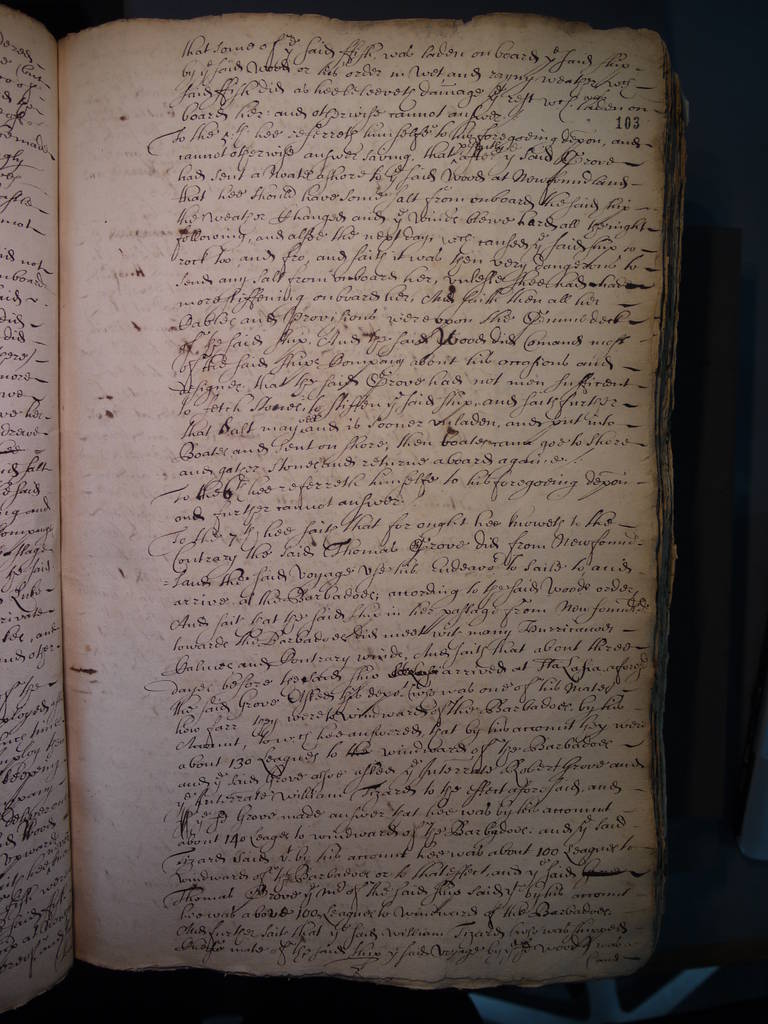 that some of ye said ffish was laden on board ye said shipp
by ye said Wood or his order in wet and rayny weather, wch
said ffish did as hee beleeveth damage ye rest wch was laden on
board her. and otherwise cannot answer.
103
To the hee referreth himselfe to his foregoeing depon, and
cannot otherwise answer saving that after ye said Grove
had sent a Boate ashore to ye said Wood at Newfoundland
that hee should have some salt from on board the said ship
the weather Changed and ye winde blewe hard all the night
following, and alsoe the next day, wch caused ye said ship to
rock too and fro, and saith it was then very dangerous to
send any salt from onboard her, unlesse shee had had
more stiffening onboard her, And saith then all her
Cables and Provisions were upon the Gunn deck
of the said ship. And the said Wood did Comand most
of the said shipps Company about his occasions and
designes, that the said Grove had not men sufficient
to fetch stones to stiffen ye said ship, and saith further
that salt may and is sooner unladen, and put into
Boates and sent on shore, then boates can goe to shore
and gather stones and returne aboard againe.
To the 6th hee referreth himselfe to his foregoeing depon
and further cannot answer.
To the 7th hee saith that for ought hee knoweth to the
Contrary the said Thomas Grove did from Newfound
land the said voyage use his Endeavor to saile to and
arrive at the Barbadoes, according to the said Woods order,
And saith that the said ship in her passage from Newfoundld
towards the Barbadoes did meet with many Hurricanes
Calmes and Contrary winds, And saith that about three
dayes before the said ship arrived at aforesd
the said Grove Asked this depot (who was one of his Mates)
how farr they were to windward of the Barbadoes by his
Account, to wch hee answered, that by his accomt they were
about 130 Leagues to windward of the Barbadoes
and ye said Grove alsoe asked ye Interrate Robert Grove and
ye Interrate William Tizard to the effect aforesaid, and
ye sd Grove made answer that hee was by his accomt
about 140 Leages to windward of the Barbadoes. and ye said
Tizard said yt by his accomt hee was about 100 Leagues to
windward of the Barbadoes or to that effect, and ye said
Thomas Grove ye Mr of the said ship said yt by his accomt
hee was above 100 Leagues to windward of the Barbadoes.
And further saith that ye said William Tizard (who was shipped
mate of the said ship ye said voyage by ye sd Wood) was
(and